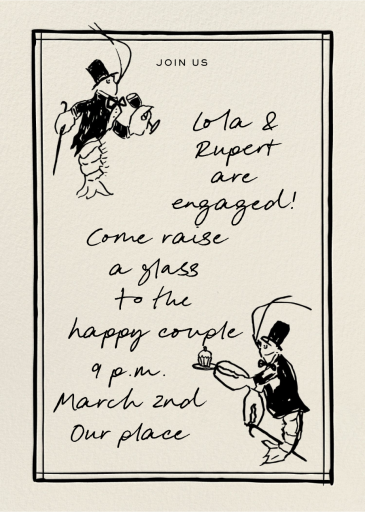 JOIN US
Lola &
Rupert
are
engaged!
Come raise
a glass
to the
happy couple
9 p.m.
March 2nd
Our place